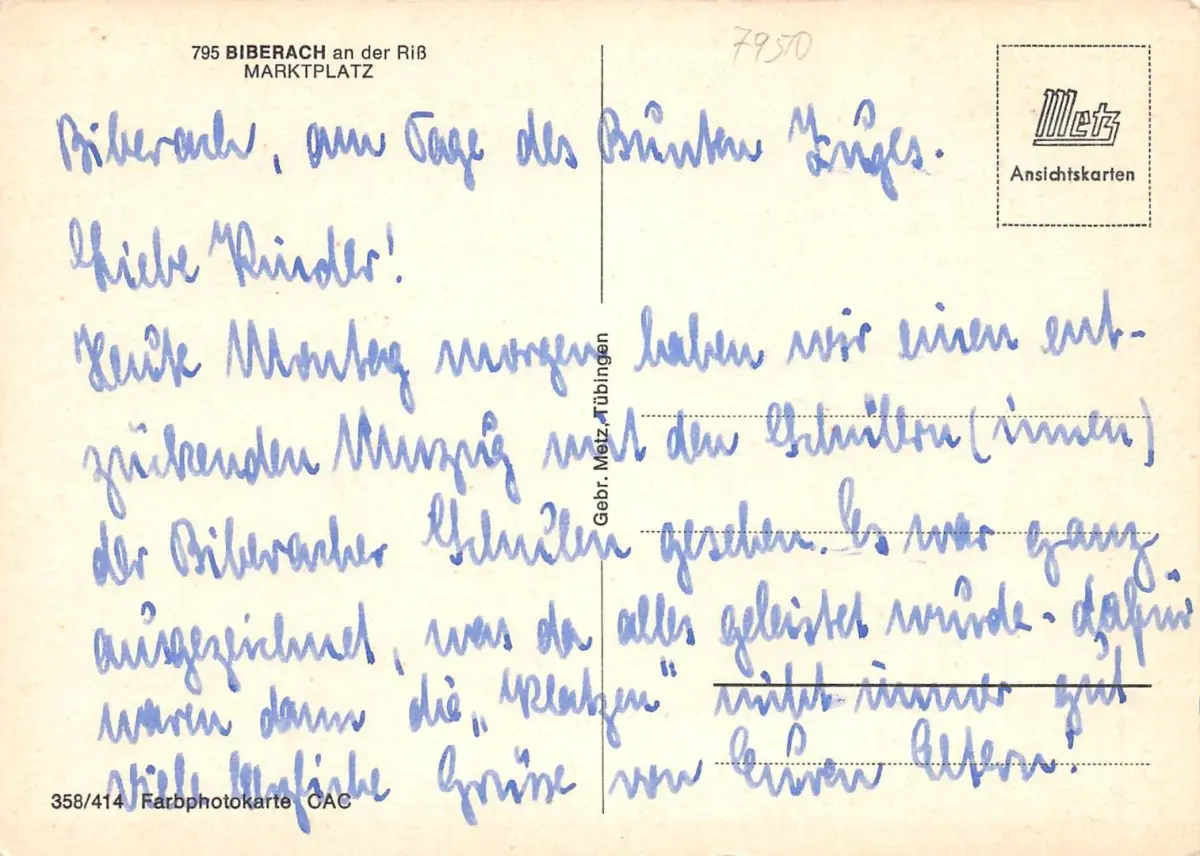 795 BIBERACH an der Riß
MARKTPLATZ
7950
Metz
Ansichtskarten
Biberach, am Tage des Bunten Zuges.
Liebe Kinder!
Heute Montag morgen haben wir einen ent-
zückenden Umzug mit den Schülern (innen)
der Biberacher Schulen gesehen. Es war ganz
ausgezeichnet, was da alles geleistet wurde - dafür
waren dann die „Klatzen" nicht immer gut
viele herzliche Grüsse von Euren Eltern!
Gebr. Metz, Tübingen
358/414 Farbphotokarte CAC